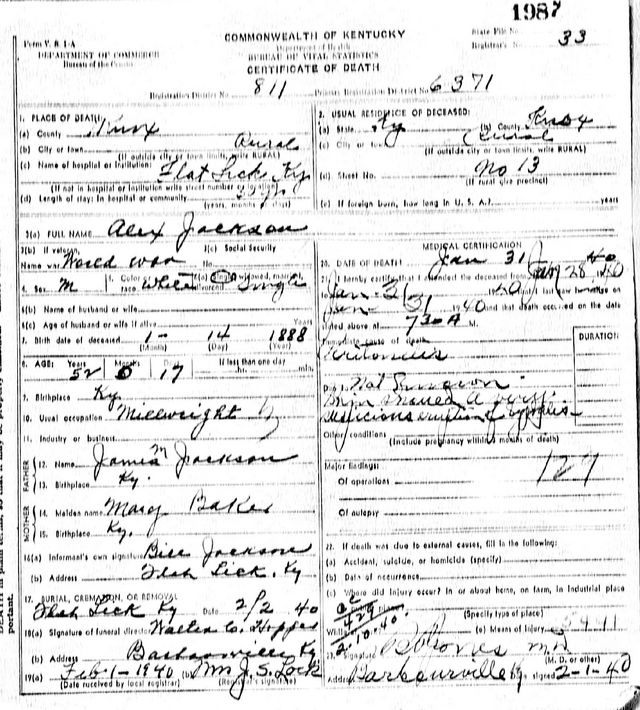 1987
Form V. S. 1-A
DEPARTMENT OF COMMERCE
Bureau of the Census
COMMONWEALTH OF KENTUCKY
Department of Health
BUREAU OF VITAL STATISTICS
CERTIFICATE OF DEATH
State File No.
Registrar's No. 33
Registration District No. 811 Primary Registration District No. 6371
1. PLACE OF DEATH:
(a) County Knox
(b) City or town Rural
(If outside city or town limits, write RURAL)
(c) Name of hospital or institution:
Flat Lick, Ky
(If not in hospital or institution write street number or location)
(d) Length of stay: In hospital or community
(years, months or days)
2. USUAL RESIDENCE OF DECEASED:
(a) State Ky (b) County Knox
(c) City or town Rural
(If outside city or town limits, write RURAL)
(d) Street No. No 13
(If rural give precinct)
(e) If foreign born, how long in U. S. A.? years
3(a) FULL NAME Alex Jackson
3(b) If veteran, 3(c) Social Security
Name war World War No.
4. Sex M 5. Color or race White 6(a) Single, widowed, married, divorced Single
6(b) Name of husband or wife
6(c) Age of husband or wife if alive Years
7. Birth date of deceased 1- 14 1888
(Month) (Day) (Year)
8. AGE: Years Months Days If less than one day
52 0 17 hr. min.
9. Birthplace Ky.
10. Usual occupation Millwright
11. Industry or business
FATHER
12. Name James M Jackson
13. Birthplace Ky.
MOTHER
14. Maiden name Mary Baker
15. Birthplace Ky.
16(a) Informant's own signature Bill Jackson
(b) Address Flat Lick, Ky
17. BURIAL, CREMATION, OR REMOVAL
Flat Lick Ky Date 2/2 40
18(a) Signature of funeral director Walter C. Hopper
(b) Address Barbourville Ky
19(a) Feb-1-1940 (b) Mrs J. S. Lock
(Date received by local registrar) (Registrar's signature)
MEDICAL CERTIFICATION
20. DATE OF DEATH Jan 31 40
I hereby certify that I attended the deceased from Jan 28 40
to Jan-31 1940 and last saw him alive on
Jan-31 1940 and that death occurred on the date
stated above at 730 A M.
Immediate cause of death
DURATION
Other conditions
(Include pregnancy within 3 months of death)
Major findings:
Of operations
129
Of autopsy
22. If death was due to external causes, fill in the following:
(a) Accident, suicide, or homicide (specify)
(b) Date of occurrence
(c) Where did injury occur? In or about home, on farm, in industrial place
(Specify type of place)
2-10-40
(e) Means of injury
23. Signature M.D.
(M. D. or other)
Address Barbourville Ky Date signed 2-1-40